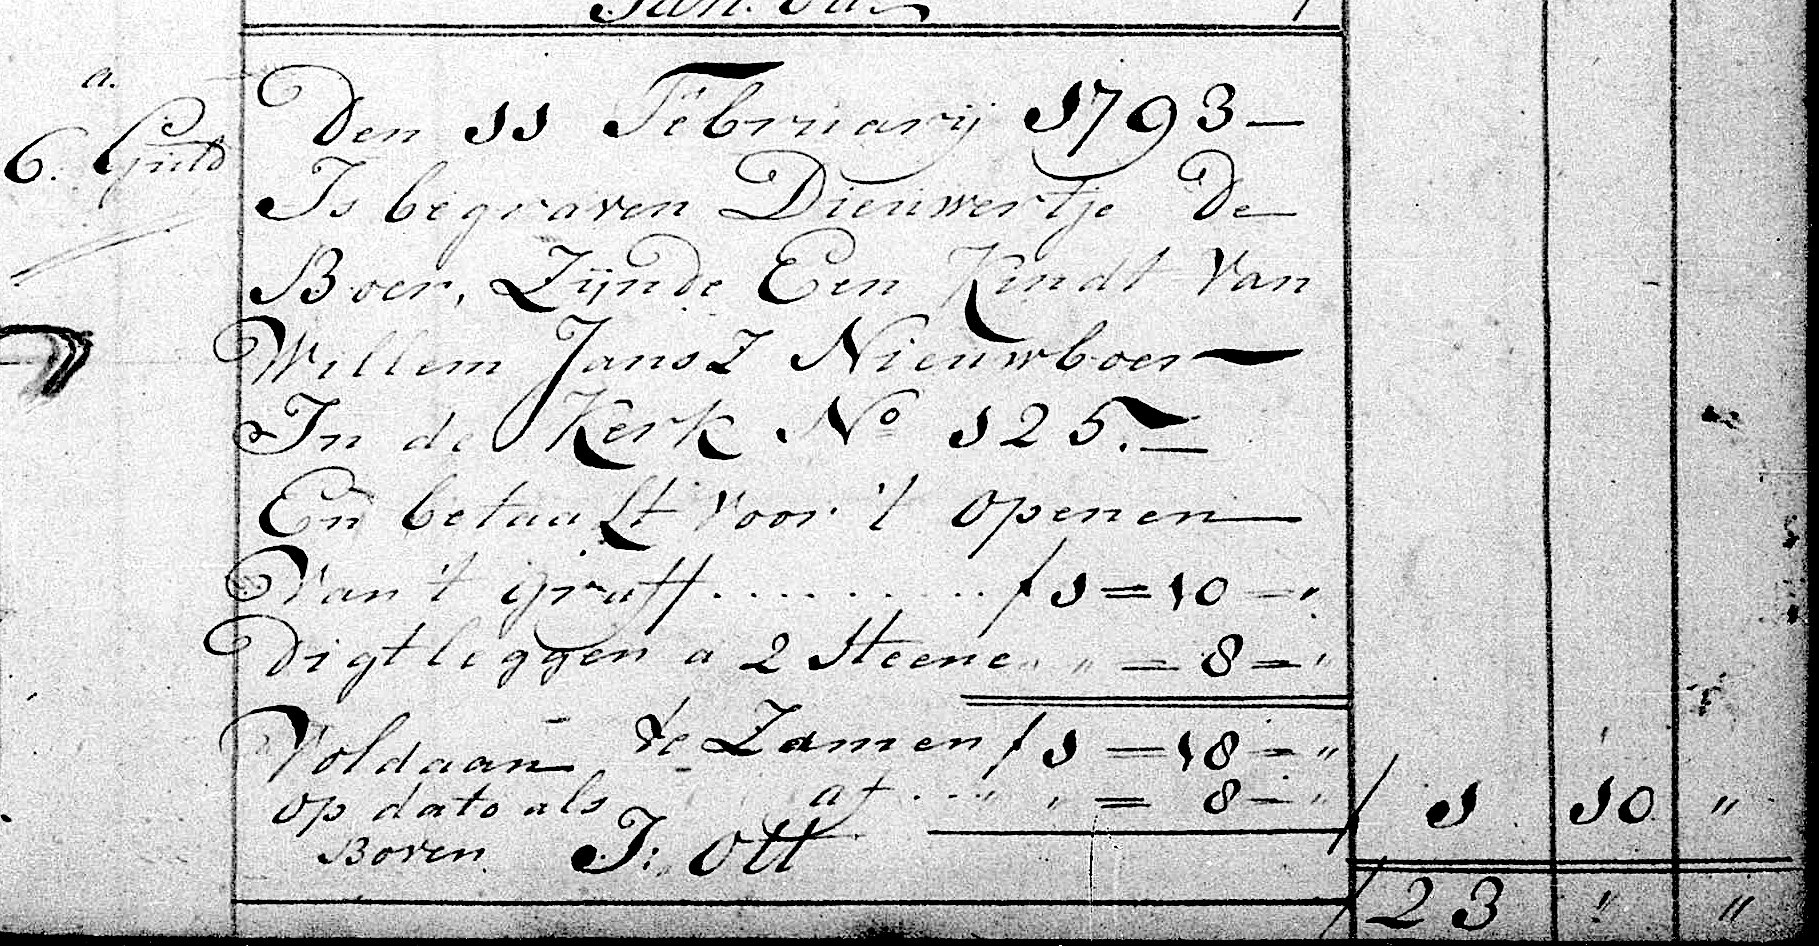 a.
6. Guld
Den 11 Februarij 1793 —
Is begraven Dieuwertje De
Boer, Zijnde Een Kindt Van
Willem Jansz Nieuwboer —
In de Kerk No 125. —
En betaalt voor 't openen —
Van 't graff .......... f 1 = 10 = "
Digt leggen a 2 Steene " " = 8 = "
te Zamen f 1 = 18 = "
Voldaan af .. " " = 8 = " f 1 10 "
op dato als
Boven J: Ott
f 23 " "